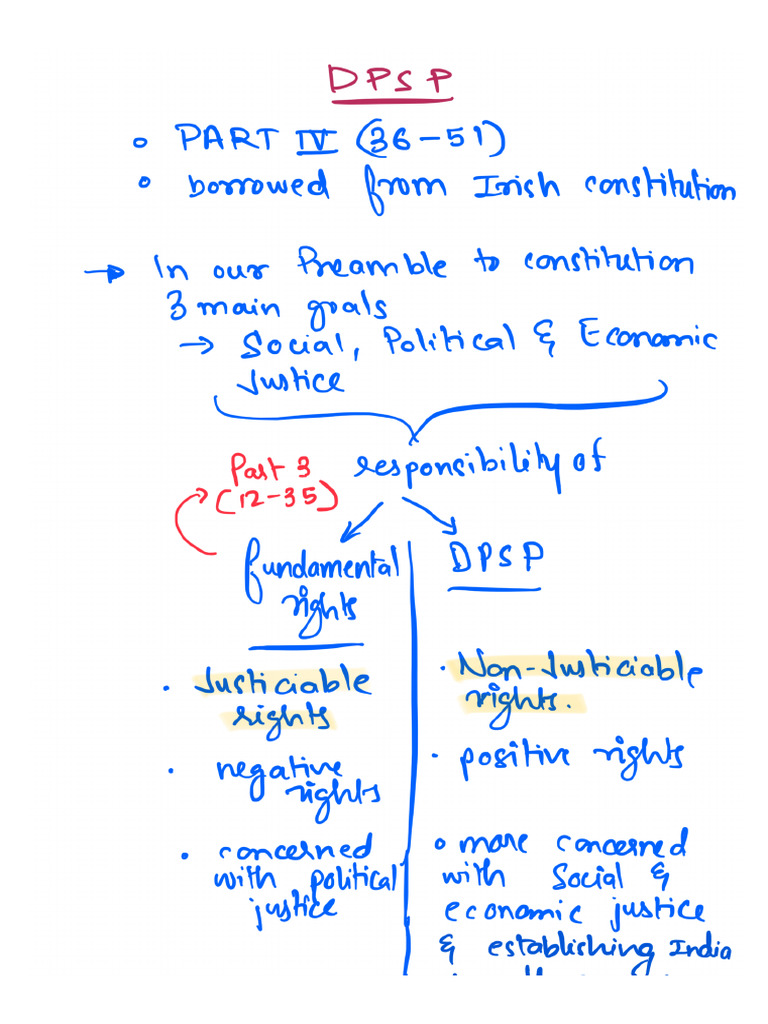 DPSP
PART IV (36-51)
borrowed from Irish constitution
→ In our Preamble to constitution
3 main goals
→ Social, Political & Economic
Justice
Part 3
(12-35)
responsibility of
fundamental
rights
Justiciable
rights
negative
rights
concerned
with political
justice
DPSP
Non-Justiciable
rights.
positive rights
more concerned
with Social &
economic justice
& establishing India